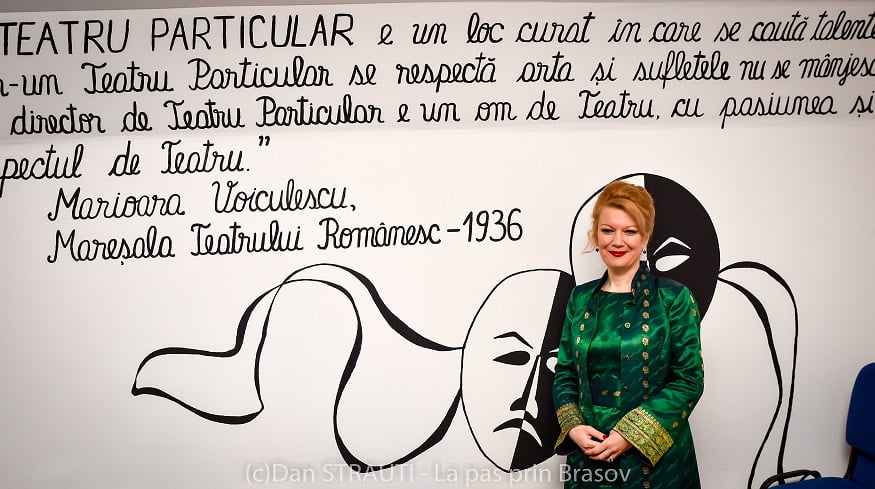 TEATRU PARTICULAR e un loc curat în care se caută talente
n-un Teatru Particular se respectă arta și sufletele nu se mânjesc
director de Teatru Particular e un om de Teatru, cu pasiunea și
pectul de Teatru."
Marioara Voiculescu,
Mareșala Teatrului Românesc - 1936
(c)Dan STRAUTI - La pas prin Brasov